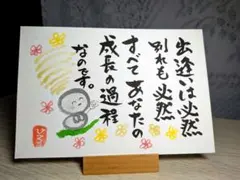 出逢いは必然
別れも必然
すべてあなたの
成長の過程
なのです。